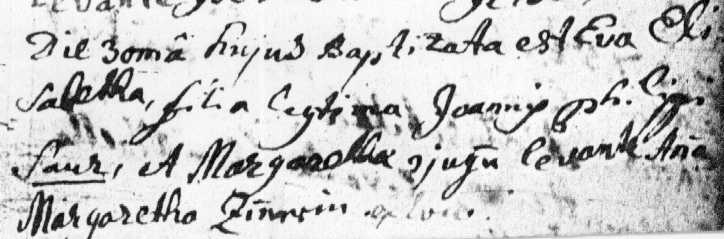 Die 30mâ hujus Baptizata est Eva Eli
sabetha, filia legitima Joannis philippi
Saur, et Margaretha conjugū levante Aña
Margaretha